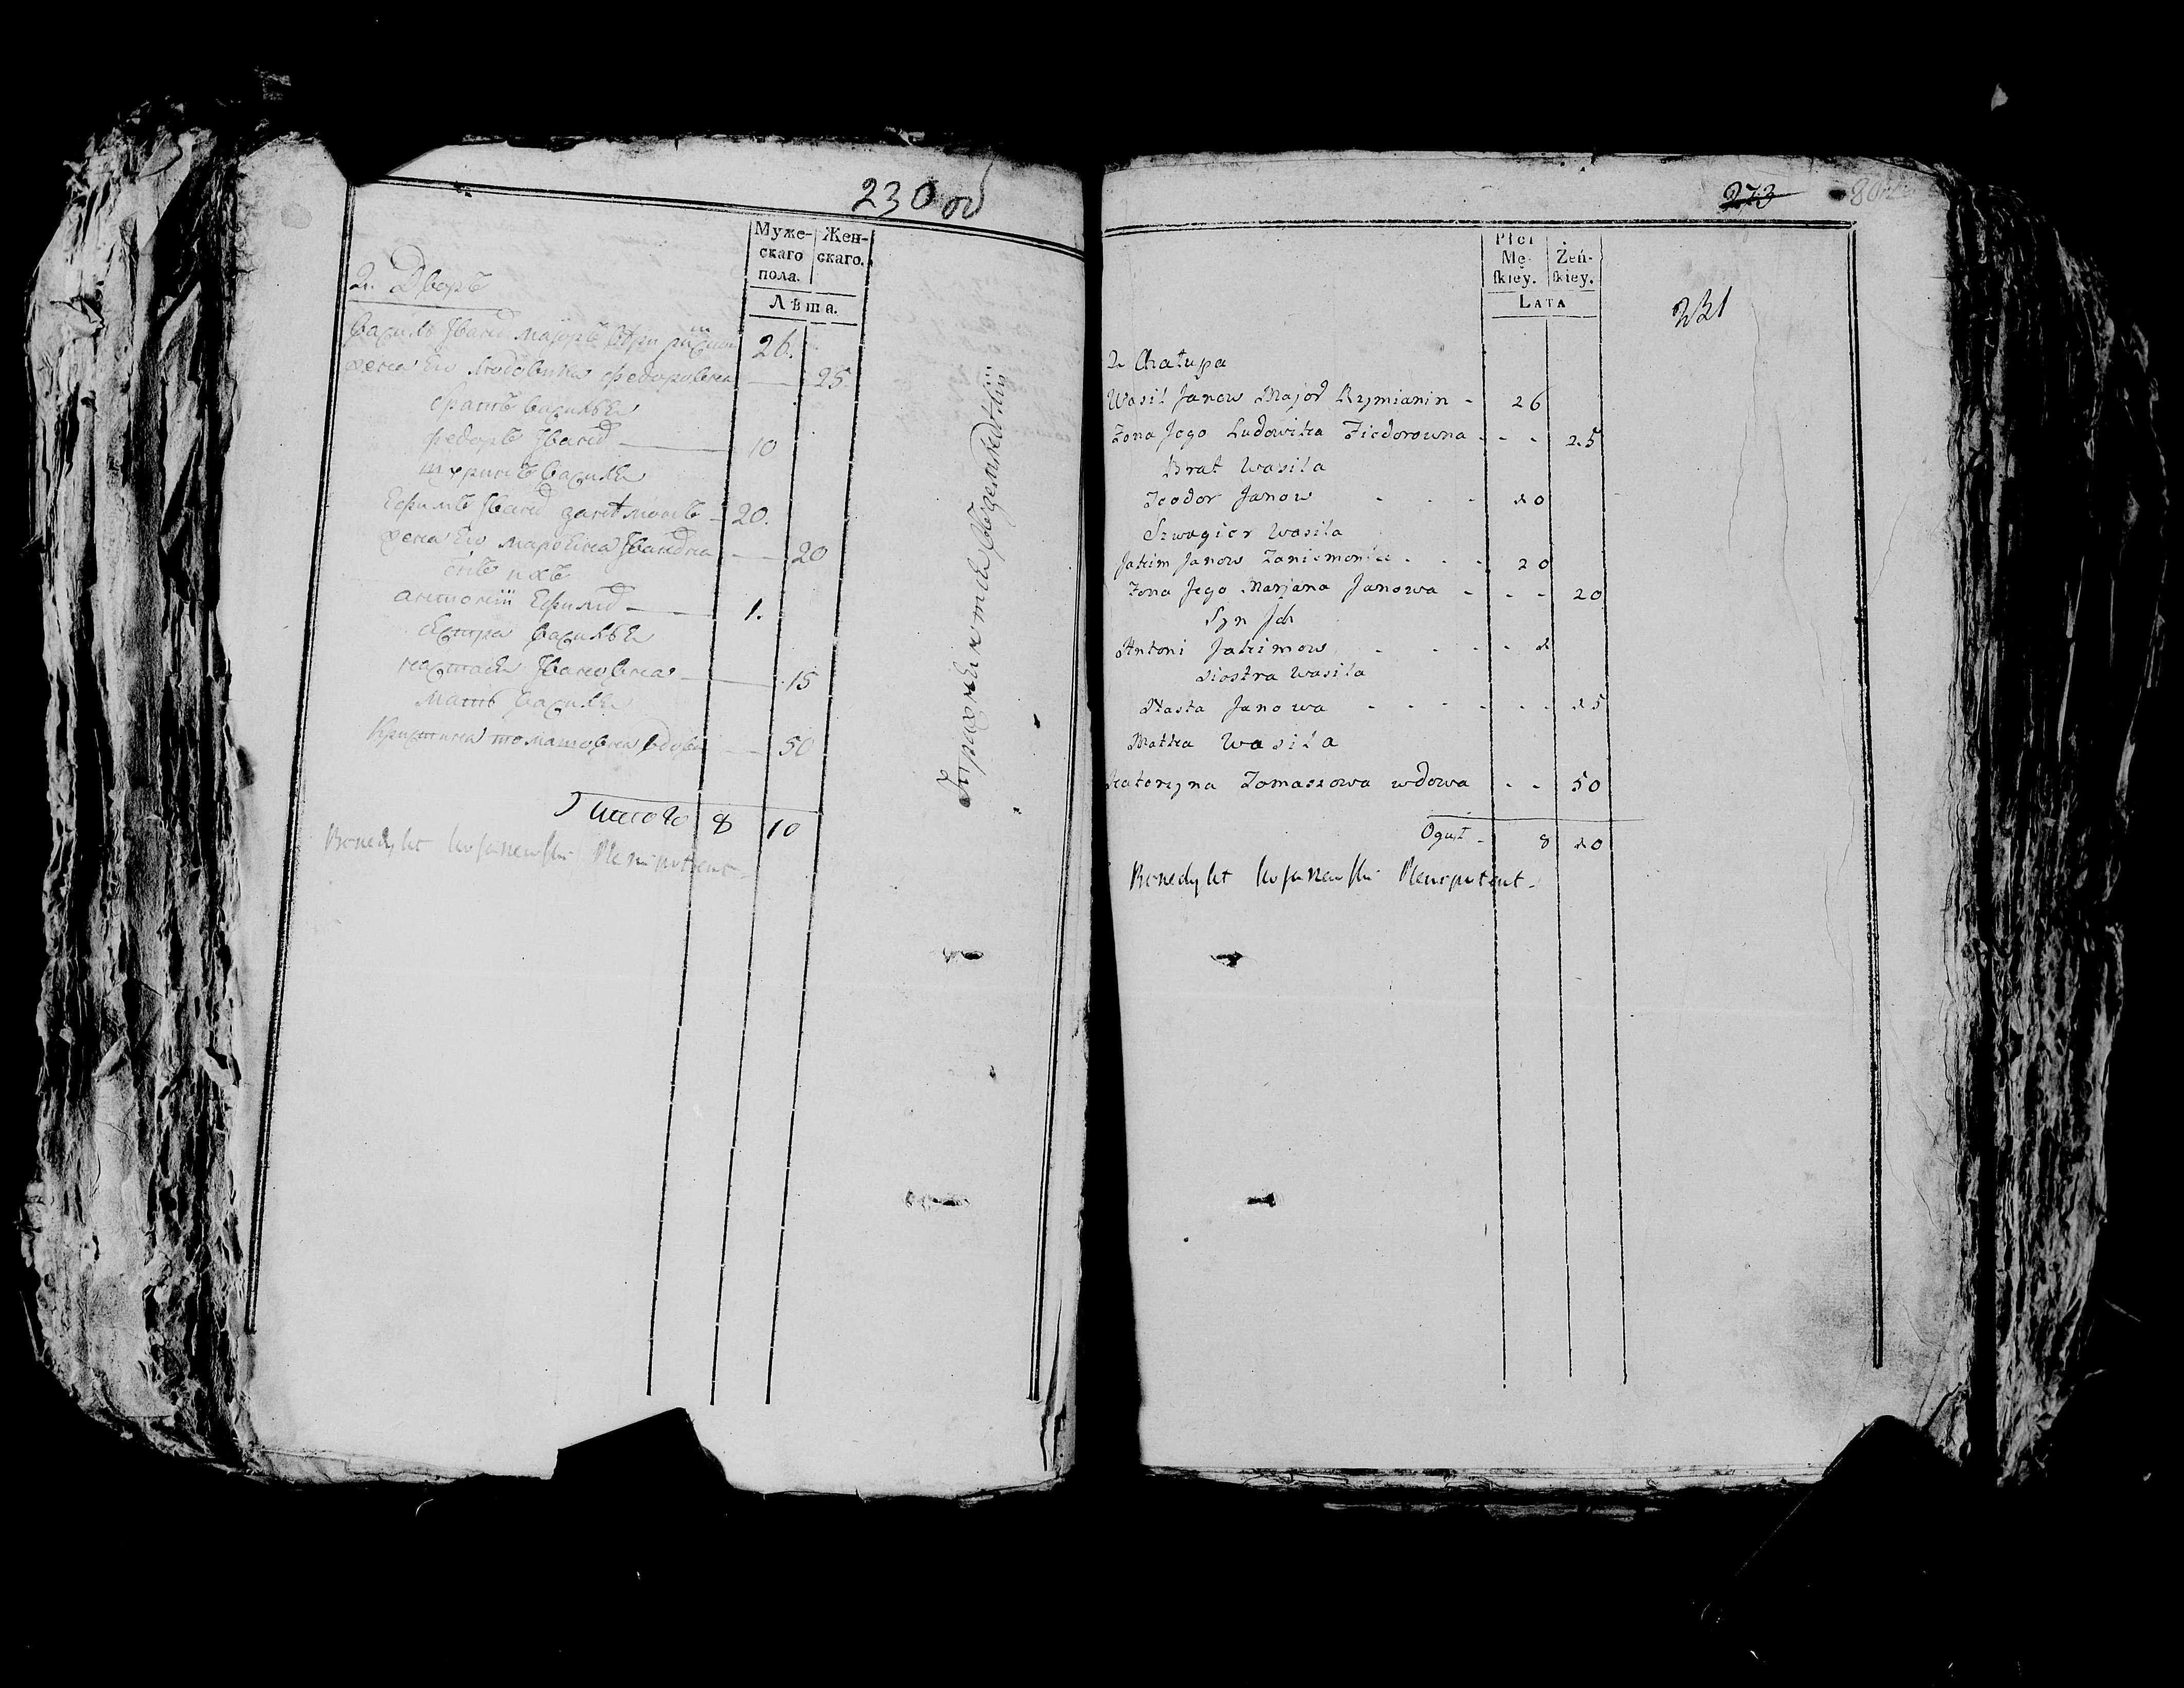 230 об
Муже- Жен-
скаго скаго.
пола.
Лѣта.
2. Дворъ
26.
жена Его Людовика Федоровна — 25
братъ Василья
Федоръ — 10
шуринъ Василья
20.
жена Его Марьяна — 20
сынъ ихъ
Антоній — 1.
сестра Василья
Настасья Івановна — 15
мать Василья
Кристина Томашовна вдова — 50
Итого 8 10
Benedykt Plenipotent
273
231
Płci
Mę- Żeń-
skiey. skiey.
LATA
2 Chałupa
Wasil Janow Major Rzymianin - 26
Żona Jego Ludowika Fiedorowna - - - 25
Brat Wasila
Teodor Janow - - - 10
Szwagier Wasila
Jakim Janow - - - 20
Żona Jego Marjana Janowa - - - 20
Syn Ich
Antoni Jakimow - - - - 1
Siostra Wasila
Nasta Janowa - - - - - - 15
Matka Wasila
Katerzyna Tomaszowa wdowa - - 50
Oguł - 8 10
Benedykt Plenipotent.